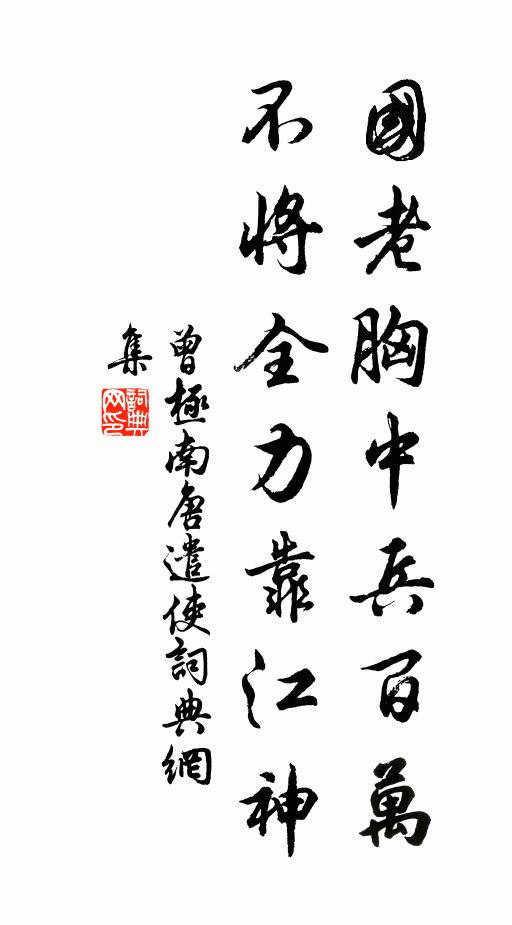 國老胸中兵百萬
不將全力靠江神
曾極南唐遣使詞典網
集
詞典
网印